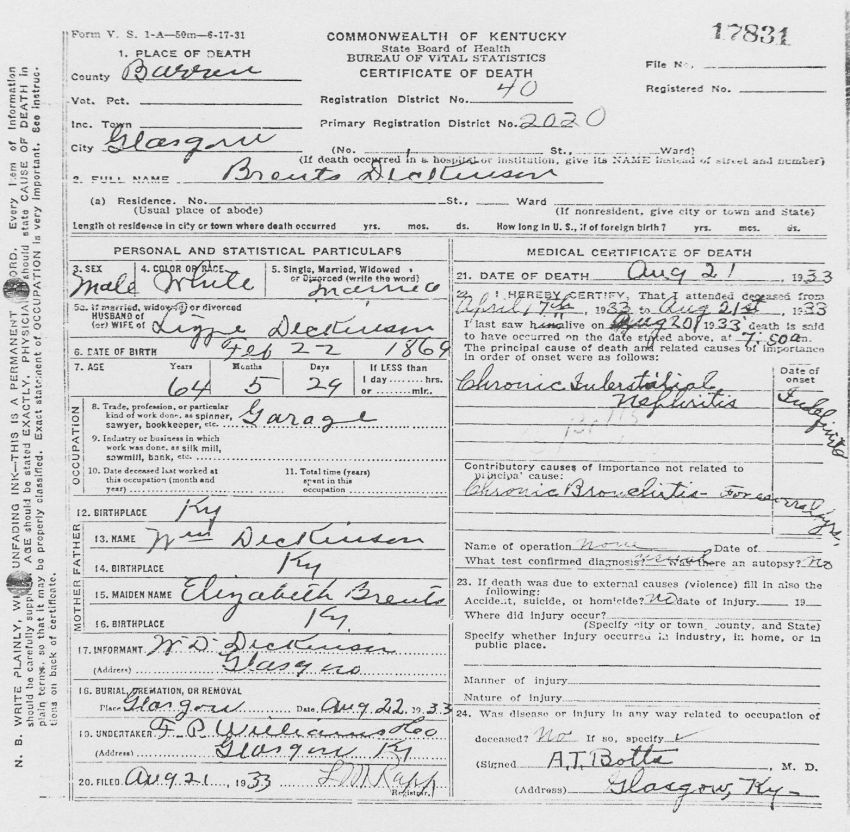 Form V. S. 1-A—50m—6-17-31
COMMONWEALTH OF KENTUCKY
State Board of Health
BUREAU OF VITAL STATISTICS
CERTIFICATE OF DEATH
17831
File No.
Registered No.
1. PLACE OF DEATH
County Barren
Vot. Pct.
Registration District No. 40
Inc. Town
Primary Registration District No. 2020
City Glasgow
(No. St., Ward)
(If death occurred in a hospital or institution, give its NAME instead of street and number)
2. FULL NAME Brents Dickinson
(a) Residence. No. St., Ward
(Usual place of abode) (If nonresident, give city or town and State)
Length of residence in city or town where death occurred yrs. mos. ds. How long in U. S., if of foreign birth? yrs. mos. ds.
PERSONAL AND STATISTICAL PARTICULARS
3. SEX Male
4. COLOR OR RACE White
5. Single, Married, Widowed
or Divorced (write the word)
Married
5a. If married, widowed or divorced
HUSBAND of
(or) WIFE of Lizzie Dickinson
6. DATE OF BIRTH Feb 22 1869
7. AGE Years Months Days If LESS than
64 5 29 1 day hrs.
or min.
OCCUPATION
8. Trade, profession, or particular
kind of work done, as spinner,
sawyer, bookkeeper, etc. Garage
9. Industry or business in which
work was done, as silk mill,
sawmill, bank, etc.
10. Date deceased last worked at
this occupation (month and
year)
11. Total time (years)
spent in this
occupation
12. BIRTHPLACE Ky
FATHER
13. NAME Wm Dickinson
14. BIRTHPLACE Ky
MOTHER
15. MAIDEN NAME Elizabeth Brents
16. BIRTHPLACE Ky
17. INFORMANT W D Dickinson
(Address) Glasgow
18. BURIAL, CREMATION, OR REMOVAL
Place Glasgow Date Aug 22, 1933
19. UNDERTAKER F P Williams & Co
(Address) Glasgow Ky
20. FILED Aug 21, 1933
Registrar.
MEDICAL CERTIFICATE OF DEATH
21. DATE OF DEATH Aug 21 1933
22. I HEREBY CERTIFY, That I attended deceased from
April 17th, 1933 to Aug 21st, 1933
I last saw him alive on Aug 20, 1933 death is said
to have occurred on the date stated above, at 7:50 a m.
The principal cause of death and related causes of importance
in order of onset were as follows:
Date of
onset
Chronic Interstitial
Nephritis
Indefinite
Contributory causes of importance not related to
principal cause:
Chronic Bronchitis - For several yrs.
Name of operation None Date of
What test confirmed diagnosis? Was there an autopsy? No
23. If death was due to external causes (violence) fill in also the
following:
Accident, suicide, or homicide? No date of injury 19
Where did injury occur?
(Specify city or town, county, and State)
Specify whether injury occurred in industry, in home, or in
public place.
Manner of injury
Nature of injury
24. Was disease or injury in any way related to occupation of
deceased? No If so, specify
(Signed A.T. Botts, M. D.
(Address) Glasgow, Ky-
N. B. WRITE PLAINLY, WITH UNFADING INK—THIS IS A PERMANENT RECORD. Every item of Information
should be carefully supplied. AGE should be stated EXACTLY. PHYSICIANS should state CAUSE OF DEATH in
plain terms, so that it may be properly classified. Exact statement of OCCUPATION is very important. See instruc-
tions on back of certificate.